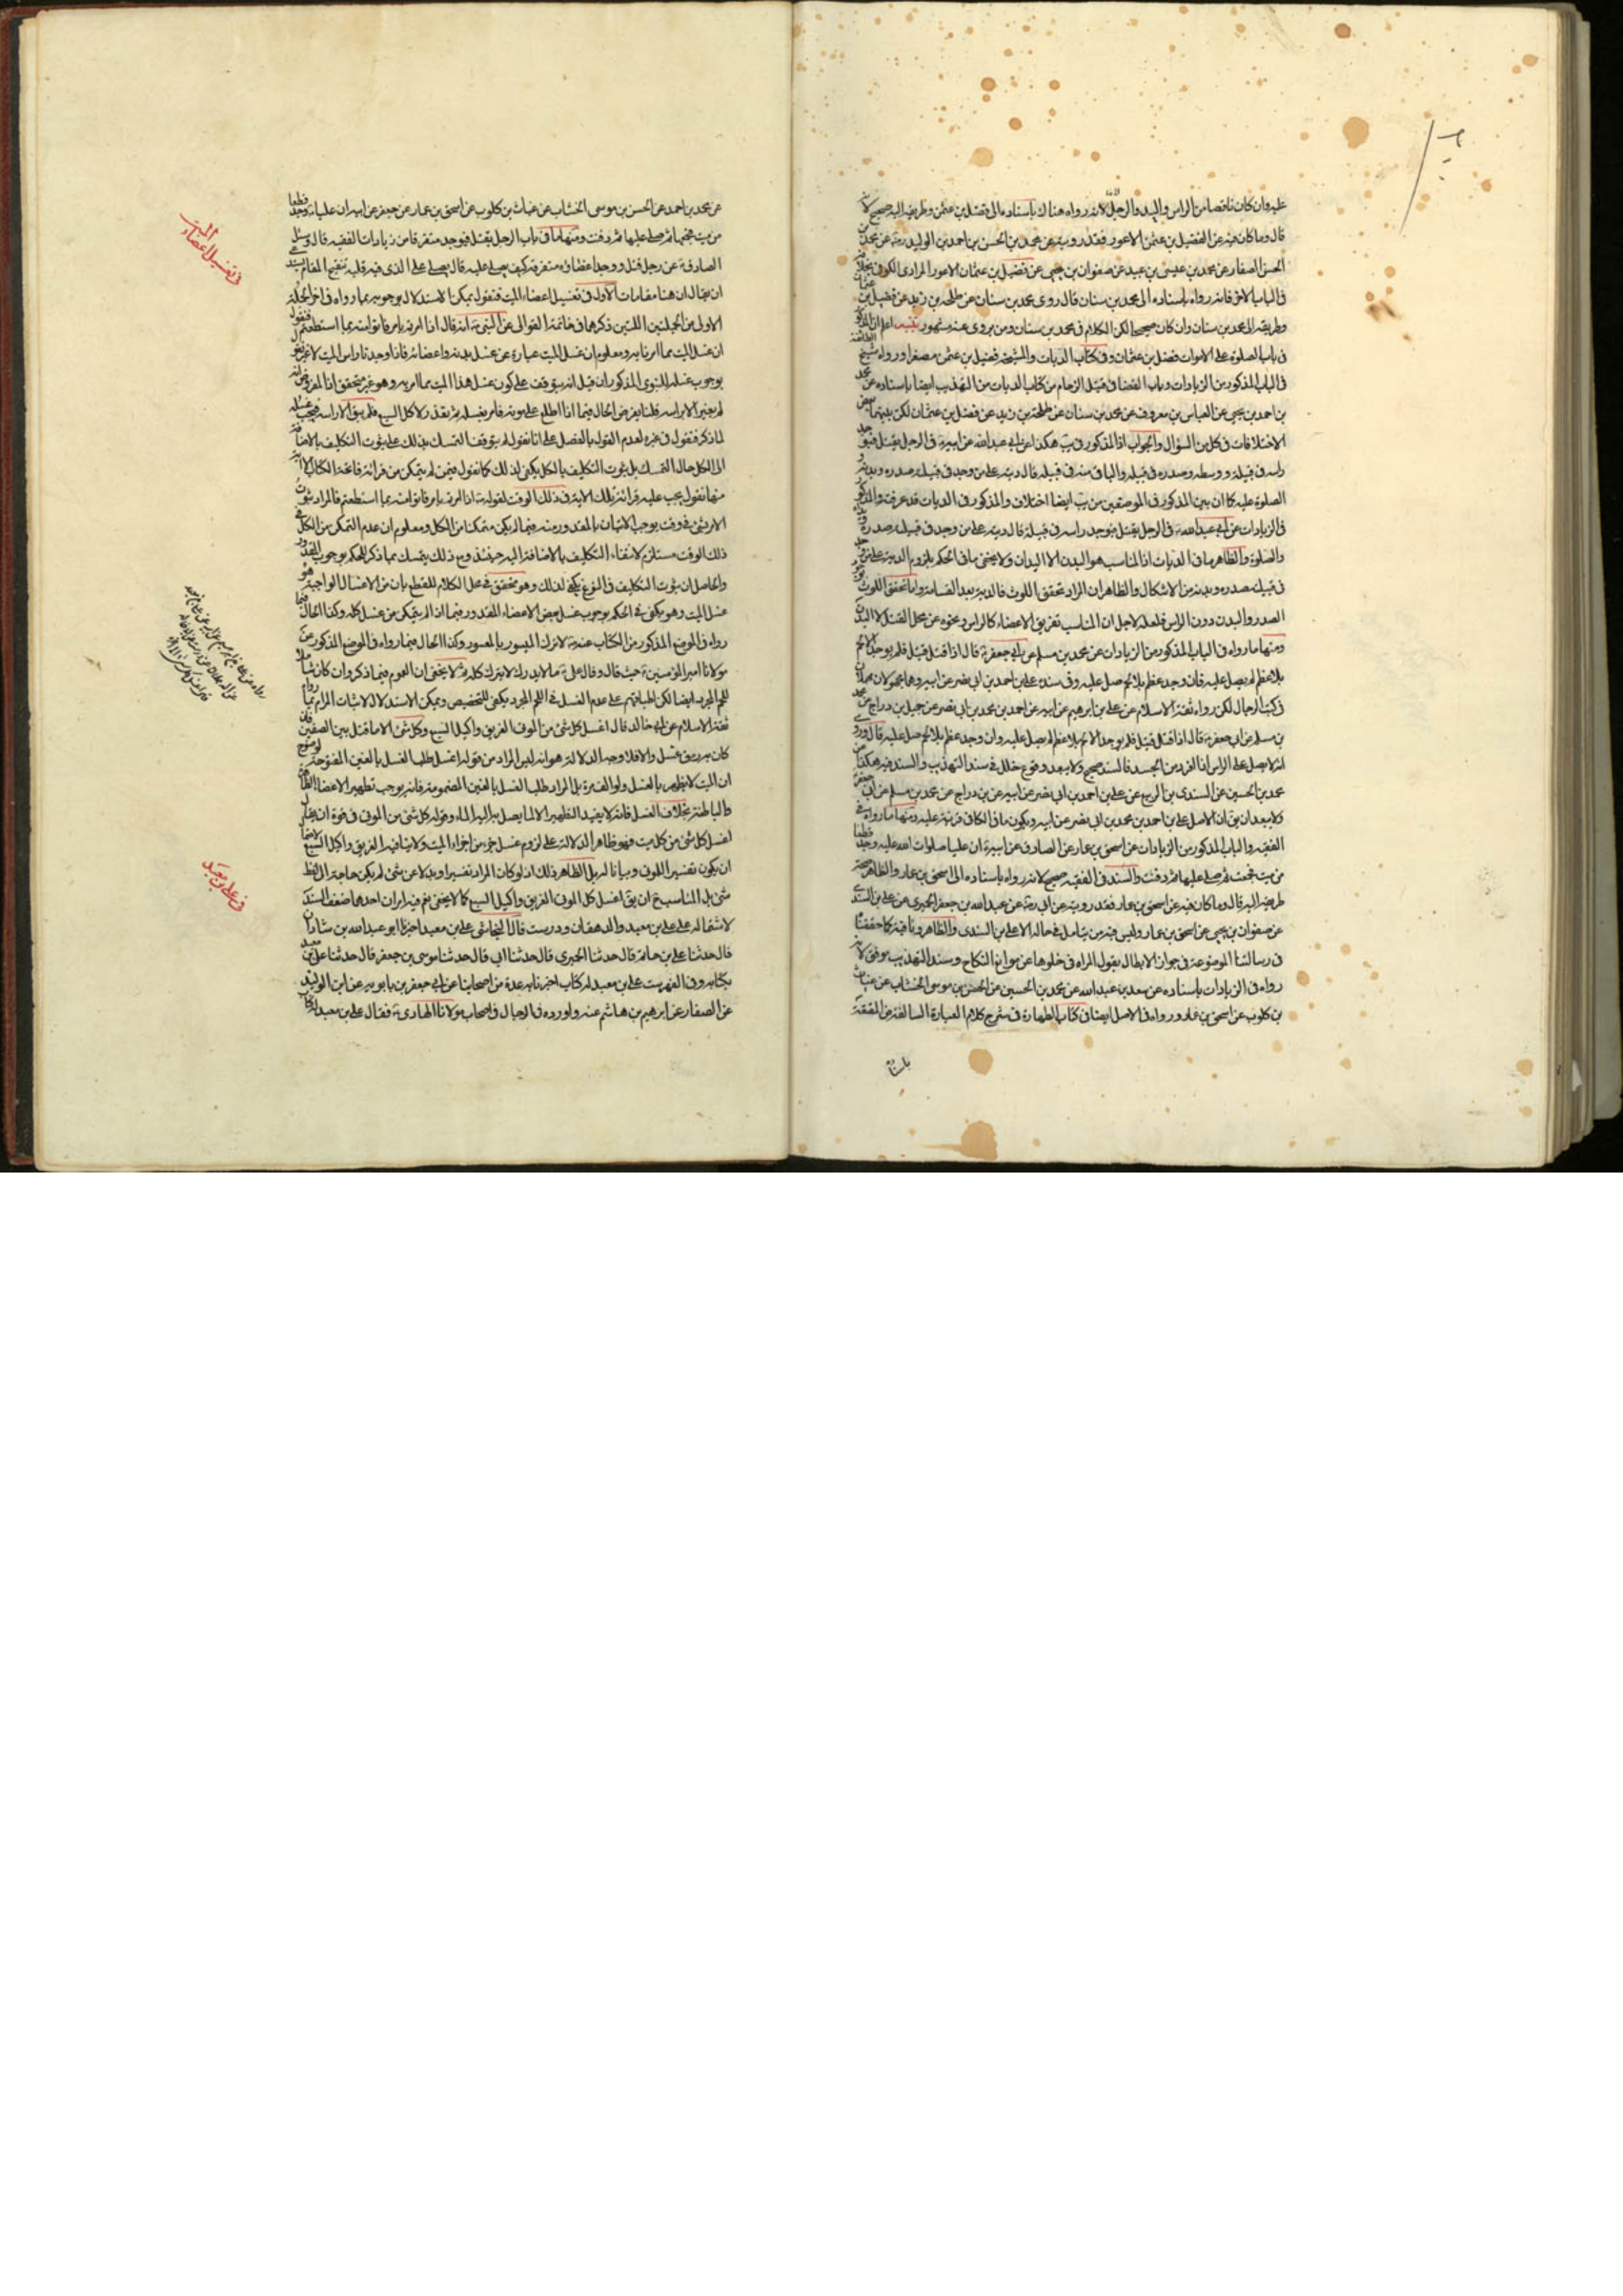 عليه وان كان ناقصا من الراس واليد والرجل لانه رواه هناك باسناده الى فضيل بن عثمن وطريقه اليه صحيح لانه
قال وما كان فيه عن الفضيل بن عثمن الاعور فقد رويته عن محمد بن الحسن بن احمد بن الوليد ره عن محمد بن
الحسن الصفار عن محمد بن عيسى بن عبيد عن صفوان بن يحيى عن فضيل بن عثمان الاعور المرادى الكوفى بخلافه
فى الباب الاخر فانه رواه باسناده الى محمد بن سنان قال روى محمد بن سنان عن طلحة بن زيد عن فضيل بن عثمان
وطريقه الى محمد بن سنان وان كان صحيحا لكن الكلام فى محمد بن سنان ومن يروى عنه مشهور تنبيه اعلم ان المذكور
فى باب الصلوة على الاموات فضل بن عثمان وفى كتاب الديات والمشيخة فضيل بن عثمن مصغرا ورواه شيخ الطائفة
فى الباب المذكور من الزيادات وباب القضا فى قتيل الزحام من كتاب الديات من التهذيب ايضا باسناده عن محمد
بن احمد بن يحيى عن العباس بن معروف عن محمد بن سنان عن طلحة بن زيد عن فضل بن عثمان لكن بينهما بعض
الاختلافات فى كل من السؤال والجواب اذ المذكور فى يب هكذا عن ابى عبد الله عن ابيه ع فى الرجل يقتل فيوجد
راسه فى قبيلة ووسطه وصدره فى قبيلة والباقى منه فى قبيلة قال ديته على من وجد فى قبيلته صدره وبدنه و
الصلوة عليه كما ان بين المذكور فى الموضعين من يب ايضا اختلاف والمذكور فى الديات قد عرفت والمذكور
فى الزيادات عن ابى عبد الله ع فى الرجل يقتل فيوجد راسه فى قبيلة قال ديته على من وجد فى قبيلته صدره ويداه
والصلوة والظاهر ما فى الديات اذ المناسب هو البدن لا اليدان ولا يخفى ما فى الحكم بلزوم الدية على من وجد
فى قبيلته صدره وبدنه من الاشكال والظاهر ان المراد تحقق اللوث فالدية بعد القسامة واما تحقق اللوث بوجود
الصدر والبدن دون الراس فلعله لاجل ان المناسب تفريق الاعضاء كالراس ونحوه عن محل القتل لا البدن
ومنها ما رواه فى الباب المذكور من الزيادات عن محمد بن مسلم عن ابى جعفر ع قال اذا قتل قتيل فلم يوجد الا لحم
بلا عظم لم يصل عليه فان وجد عظم بلا لحم صل عليه وفى سنده على بن احمد بن ابى نصر عن ابيه وهما مجهولان مهملان
فى كتب الرجال لكن رواه ثقة الاسلام عن على بن ابرهيم عن ابيه عن احمد بن محمد بن ابى نصر عن جميل بن دراج عن محمد
بن مسلم عن ابى جعفر ع قال اذا قتل قتيل فلم يوجد الا لحم بلا عظم لم يصل عليه وان وجد عظم بلا لحم صل عليه قال وروى
انه لا يصل على الراس اذا افرد من الجسد فالسند صحيح ولا يبعد وقوع خلل فى سند التهذيب والسند فيه هكذا عن
محمد بن الحسين عن السندى بن الربيع عن على بن احمد بن ابى نصر عن ابيه عن بن دراج عن محمد بن مسلم عن ابى جعفر
ولا يبعد ان يق ان الاصل على بن احمد بن محمد بن ابى نصر عن ابيه ويكون ما فى الكافى قرينة عليه ومنها ما رواه فى
الفقيه والباب المذكور من الزيادات عن اسحق بن عمار عن الصادق عن ابيه ع ان عليا صلوات الله عليه وجد قطعا
من ميت فجمعت ثم صلى عليها ثم دفنت والسند فى الفقيه صحيح لانه رواه باسناده الى اسحق بن عمار والظاهر صحة
طريقه اليه قال وما كان فيه عن اسحق بن عمار فقد رويته عن ابى ره عن عبد الله بن جعفر الحميرى عن على بن السندى
عن صفوان بن يحيى عن اسحق بن عمار وليس فيه من يتامل فى حاله الا على بن السندى والظاهر وثاقته كما حققنا
فى رسالتنا الموضوعة فى جواز الابطال بقول المراة فى خلوها عن موانع النكاح وسند التهذيب موثق لانه
رواه فى الزيادات باسناده عن سعد بن عبد الله عن محمد بن الحسين عن الحسن بن موسى الخشاب عن غياث
بن كلوب عن اسحق بن عمار ورواه فى الاصل ايضا فى كتاب الطهارة فى شرح كلام العبارة السالفة من المقنعة
باسناده
عن محمد بن احمد عن الحسن بن موسى الخشاب عن غياث بن كلوب عن اسحق بن عمار عن جعفر عن ابيه ان عليا ع وجد قطعا
من ميت فجمعها ثم صلى عليها ثم دفنت ومنها ما فى باب الرجل يقتل فيوجد متفرقا من زيادات الفقيه قال وسئل
الصادق ع عن رجل قتل ووجد اعضاؤه متفرقة كيف يصلى عليه قال يصلى على الذى فيه قلبه تنقيح المقام يستدعى
ان يقال ان هنا مقامات الاول فى تغسيل اعضاء الميت فنقول يمكن الاستدلال بوجوبه بما رواه فى اخر المجلة
الاولى من المجلتين اللتين ذكرها فى خاتمة الغوالى عن النبى ص انه قال اذا امرتم بامر فاتوا منه بما استطعتم فنقول
ان غسل الميت مما امرنا به ومعلوم ان غسل الميت عبارة عن غسل بدنه واعضائه فاذا وجدنا راس الميت لا غير نحكم
بوجوب غسله للنبوى المذكور ان قيل انه يتوقف على كون غسل هذا الميت مما امر به وهو غير متحقق اذ المفروض انه
لم يعثر الا براسه قلنا يفرض الحال فيما اذا اطلع على موته فامر بغسله ثم بعد ذلك اكل السبع فلم يبق الا راسه فيجب غسله
لما ذكر فنقول فى غيره لعدم القول بالفصل على انا نقول لم يتوقف التمسك بذلك على ثبوت التكليف بالاضافة
الى الكل حال التمسك بل ثبوت التكليف بالكل يكفى لذلك كما نقول فيمن لم يتمكن من قرائة فاتحة الكتاب الا اية
منها نقول يجب عليه قرائة تلك الاية فى ذلك الوقت لقوله ص اذا امرتم بامر فاتوا منه بما استطعتم فالمراد ثبوت
الامر بشئ فى وقت يوجب الاتيان بالمقدور منه فيما لم يكن متمكنا من الكل ومعلوم ان عدم التمكن من الكل فى
ذلك الوقت مستلزم لانتفاء التكليف بالاضافة اليه حينئذ ومع ذلك يتمسك بما ذكر للحكم بوجوب المقدور
والحاصل ان ثبوت التكليف فى النوع يكفى لذلك وهو متحقق فى محل الكلام للقطع بان من الاغسال الواجبة هو
غسل الميت وهو يكفى فى الحكم بوجوب غسل بعض الاعضاء المقدور فيما اذا لم يتمكن من غسل كله وكذا الحال فيما
رواه فى الموضع المذكور من الكتاب عنه ص لا يترك الميسور بالمعسور وكذا الحال فيما رواه فى الموضع المذكور عن
مولانا امير المؤمنين ع حيث قال وقال على ع ما لا يدرك كله لا يترك كله لا يخفى ان العموم فيما ذكر وان كان شاملا
للحم المجرد ايضا لكن اطباقهم على عدم الغسل فى اللحم المجرد يكفى للتخصيص ويمكن الاستدلال لاثبات المرام بما رواه
ثقة الاسلام عن ابى خالد قال اغسل كل شئ من الموتى الغريق واكيل السبع وكل شئ الا ما قتل بين الصفين فان
كان به رمق غسل والا فلا وجه الدلالة هو انه ليس المراد من قوله اغسل طلب الغسل بالغين المفتوحة لوضوح
ان الميت لا يطهر بالغسل ولو الف مرة بل المراد طلب الغسل بالغين المضمومة فانه يوجب تطهير الاعضاء الظاهرة
والباطنة بخلاف الغسل فانه لا يفيد التطهير الا لما يصل به اليه الماء وقوله كل شئ من الموتى فى قوة ان يقال
اغسل كل شئ من كل ميت فهو ظاهر الدلالة على لزوم غسل جزء من اجزاء الميت ولا ينافيه الغريق واكيل السبع لامكان
ان يكون تفسير اللموتى وبيانا لم بل الظاهر ذلك اذ لو كان المراد تفسيرا وبدلا عن شئ لم يكن حاجة الى لفظ
شئ بل المناسب ح ان يق اغسل كل الموتى الغريق واكيل السبع كما لا يخفى نعم فيه امران احدهما ضعف السند
لاشتماله على على بن معبد والدهقان ودرست قال النجاشى على بن معبد اخبرنا ابو عبد الله بن شاذان
قال حدثنا على بن حاتم قال حدثنا الحميرى قال حدثنا ابى قال حدثنا موسى بن جعفر قال حدثنا على بن معبد
بكتابه وفى الفهرست على بن معبد له كتاب اخبرنا به عدة من اصحابنا عن ابى جعفر بن بابويه عن ابن الوليد
عن الصفار عن ابرهيم بن هاشم عنه واورده فى الرجال فى اصحاب مولانا الهادى ع فقال على بن معبد له كتاب
فى تغسيل اعضاء الميت
فى على بن معبد